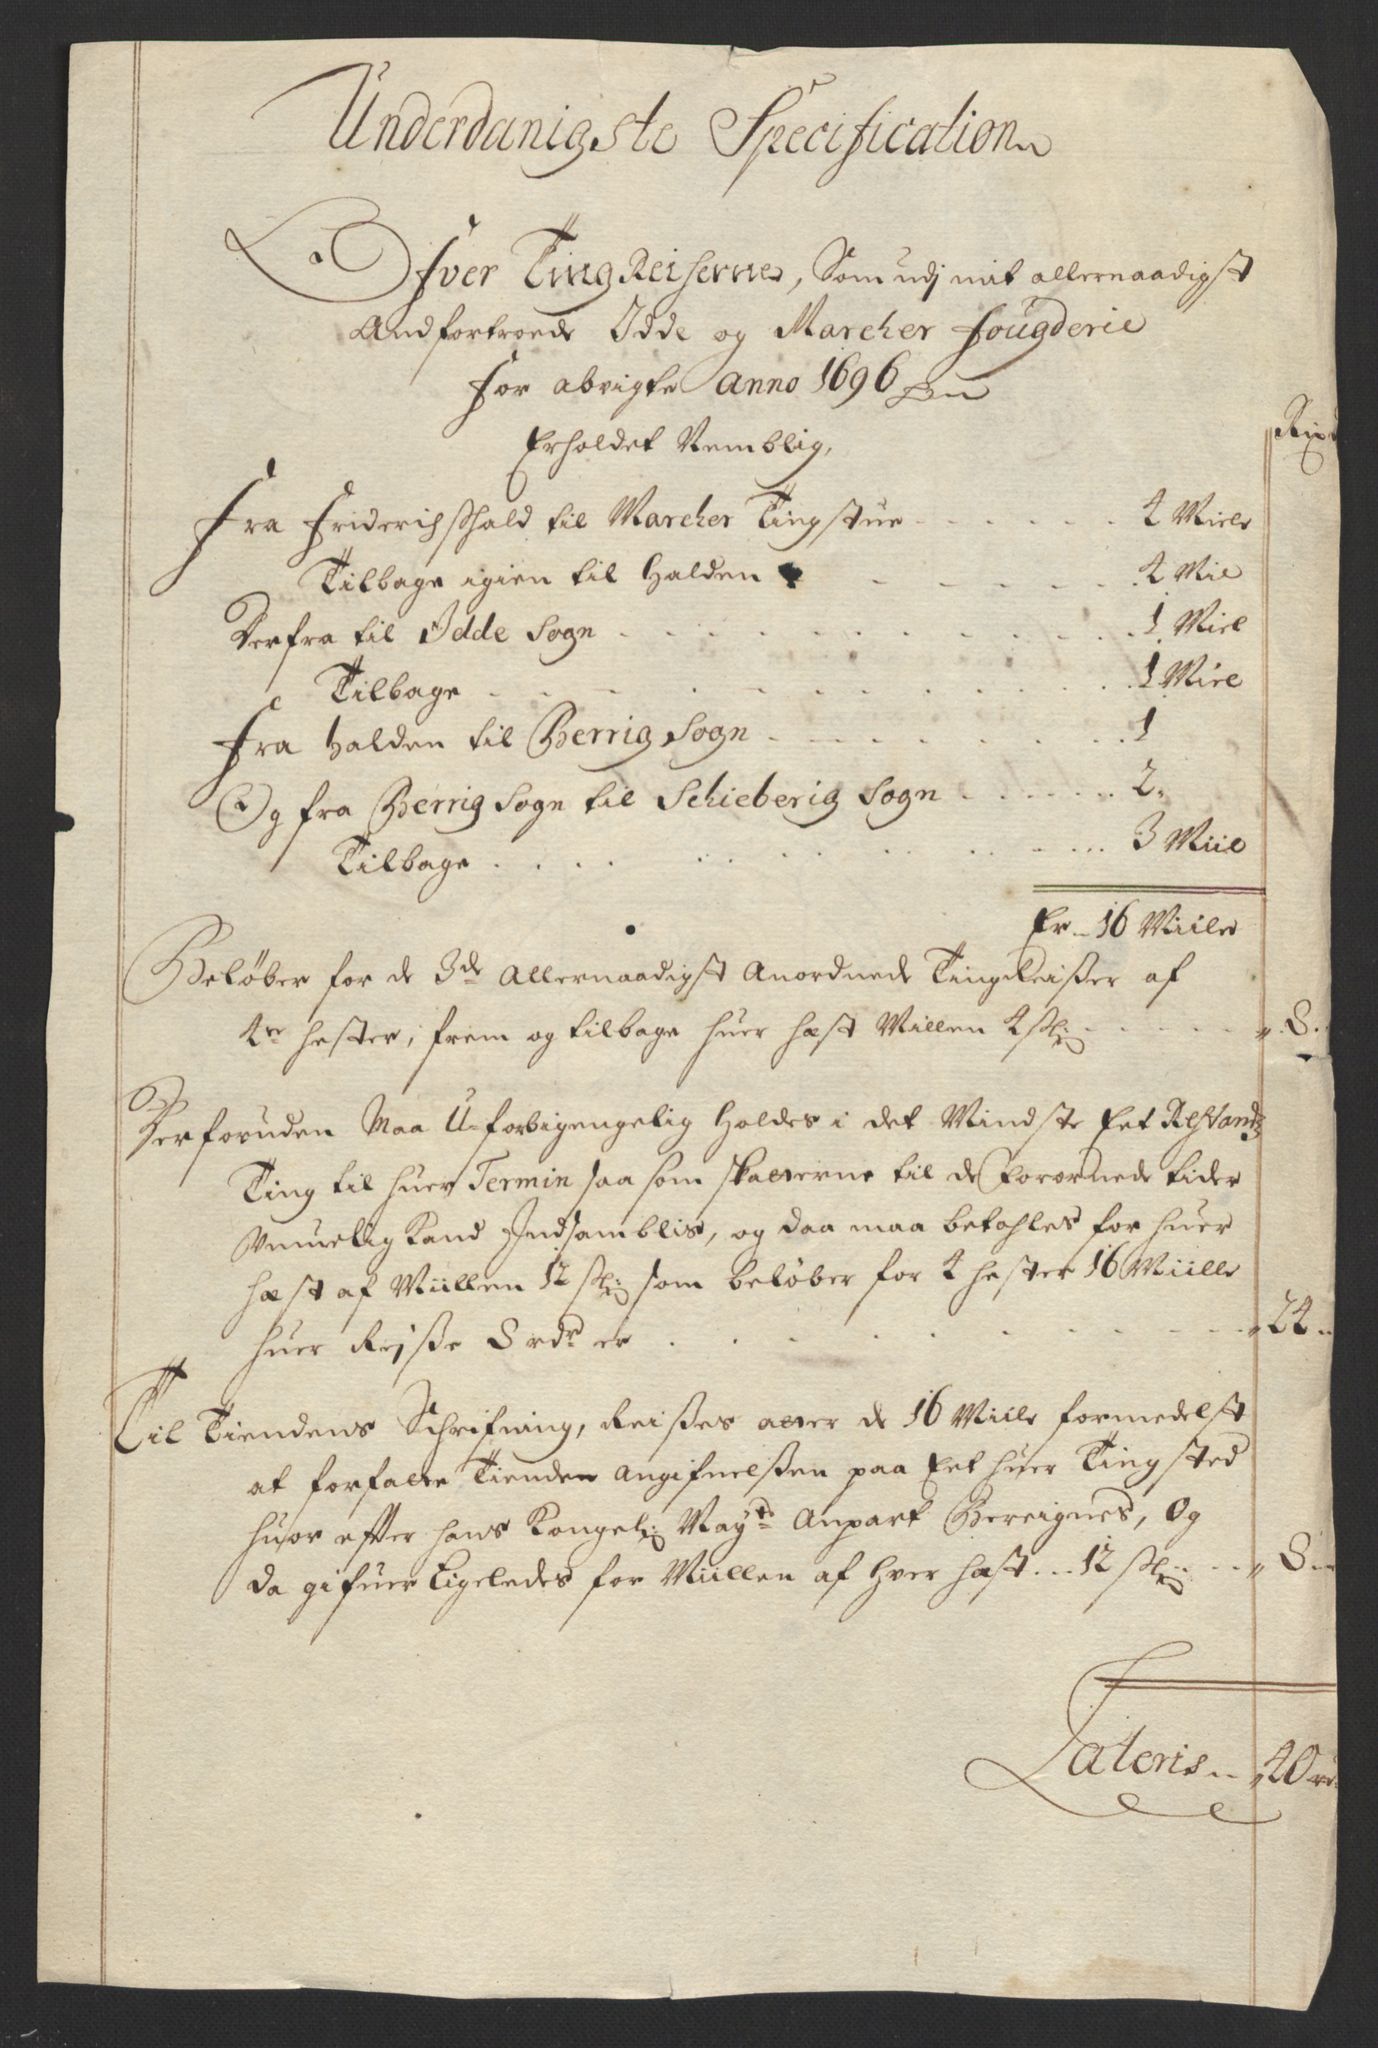 Underdanigste Specification
Ofver Ting Reiserne, Som udj mit allernaadigst
Andfortroede Idde og Marcher fougderie
for abvigte Anno 1696
Erholdet Nemblig,
Rixd
Fra Friderichshald til Marcher Tingstue - - - - - 4 Miele
Tilbage igien til Halden - - - - - 4 Mil
Derfra til Idde Sogn - - - - - 1 Miel
Tilbage - - - - - 1 Miel
Fra Halden til Berrig Sogn - - - - - 1
Og fra Berrig Sogn til Schieberig Sogn - - - - - 2.
Tilbage - - - - - 3 Miil
Er - 16 Miile
Beløber for de 3de Allernaadigst Anordnede Tingreißer af
4re hester, frem og tilbage huer hæst Millen 4 sk: - - - - - 8.
Derforuden Maa U-forbigengelig Holdes i det Mindste Eet Restandz
Ting til huer Termin saa som skatterne til de forordnede tider
Vmuelig Kand Indsamblis, og daa maa betahles for huer
hæst af Miillen 12 sk: som beløber for 4 hester 16 Miille
huer Reyße 8 rdr er - - - - - 24 -
Til Tiendens Schrifning, Reißes atter de 16 Miile formedelst
at forfatte Tienden Angifuelßen paa Eet huer Tingsted
huor effter hans Kongel: Mayts Anpart Bereignes, Og
da gifuer Ligeledes for Miillen af Hver hæst - - 12 sk: - - - 8 -
Lateris - - 40 rd